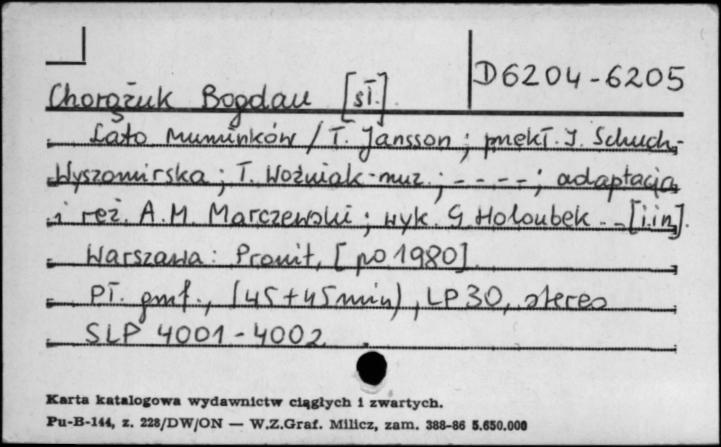 D6204-6205
Chorążuk Bogdan [sł.]
Lato Muminków / T. Jansson ; przekł. I. Szuch-
Wyszomirska ; T. Woźniak-muz. ; - - - - ; adaptacja
i reż. A.M. Marczewski ; wyk. G. Holoubek ... [i in.]
Warszawa : Pronit, [po 1980]
Pł. gmf., (45+45min), LP30, stereo
SLP 4001-4002
Karta katalogowa wydawnictw ciągłych i zwartych.
Pu-B-144, z. 228/DW/ON — W.Z.Graf. Milicz, zam. 388-86 5.650.000